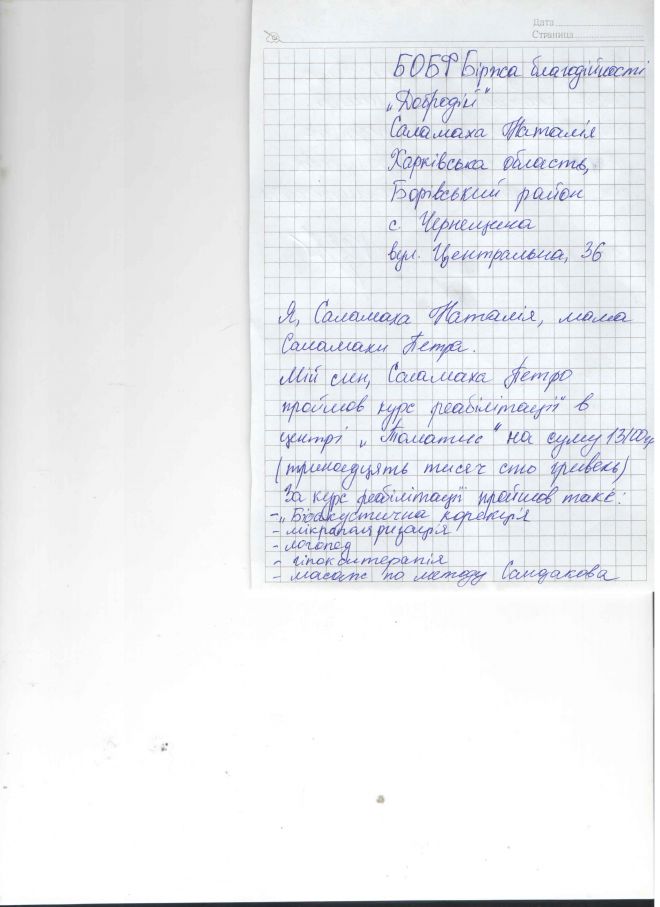 Дата
Страница
БОБФ Біржа благодійності
„Добродій"
Саламаха Наталія
Харківська область,
Борівський район
с. Чернещина
вул. Центральна, 36
Я, Саламаха Наталія, мама
Саламахи Петра.
Мій син, Саламаха Петро
пройшов курс реабілітації в
центрі „Томатис" на суму 13100гр
(тринадцять тисяч сто гривень)
За курс реабілітації пройшов таке:
- „Біоакустична корекція
- мікрополяризація
- логопед
- гіпокситерапія
- масаж по методу Сандакова